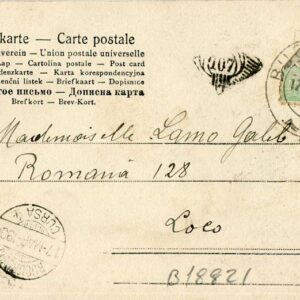 karte — Carte postale
verein — Union postale universelle
Lap — Cartolina postale — Post card
denzkarte — Karta korespondencyjna
denční lístek — Briefkaart — Dopisnica
тое письмо — Дописна карта
Brefkort — Brev-Kort.
107
Mademoiselle Lamo Galib
Romană 128
Loco
CURSA
B18821